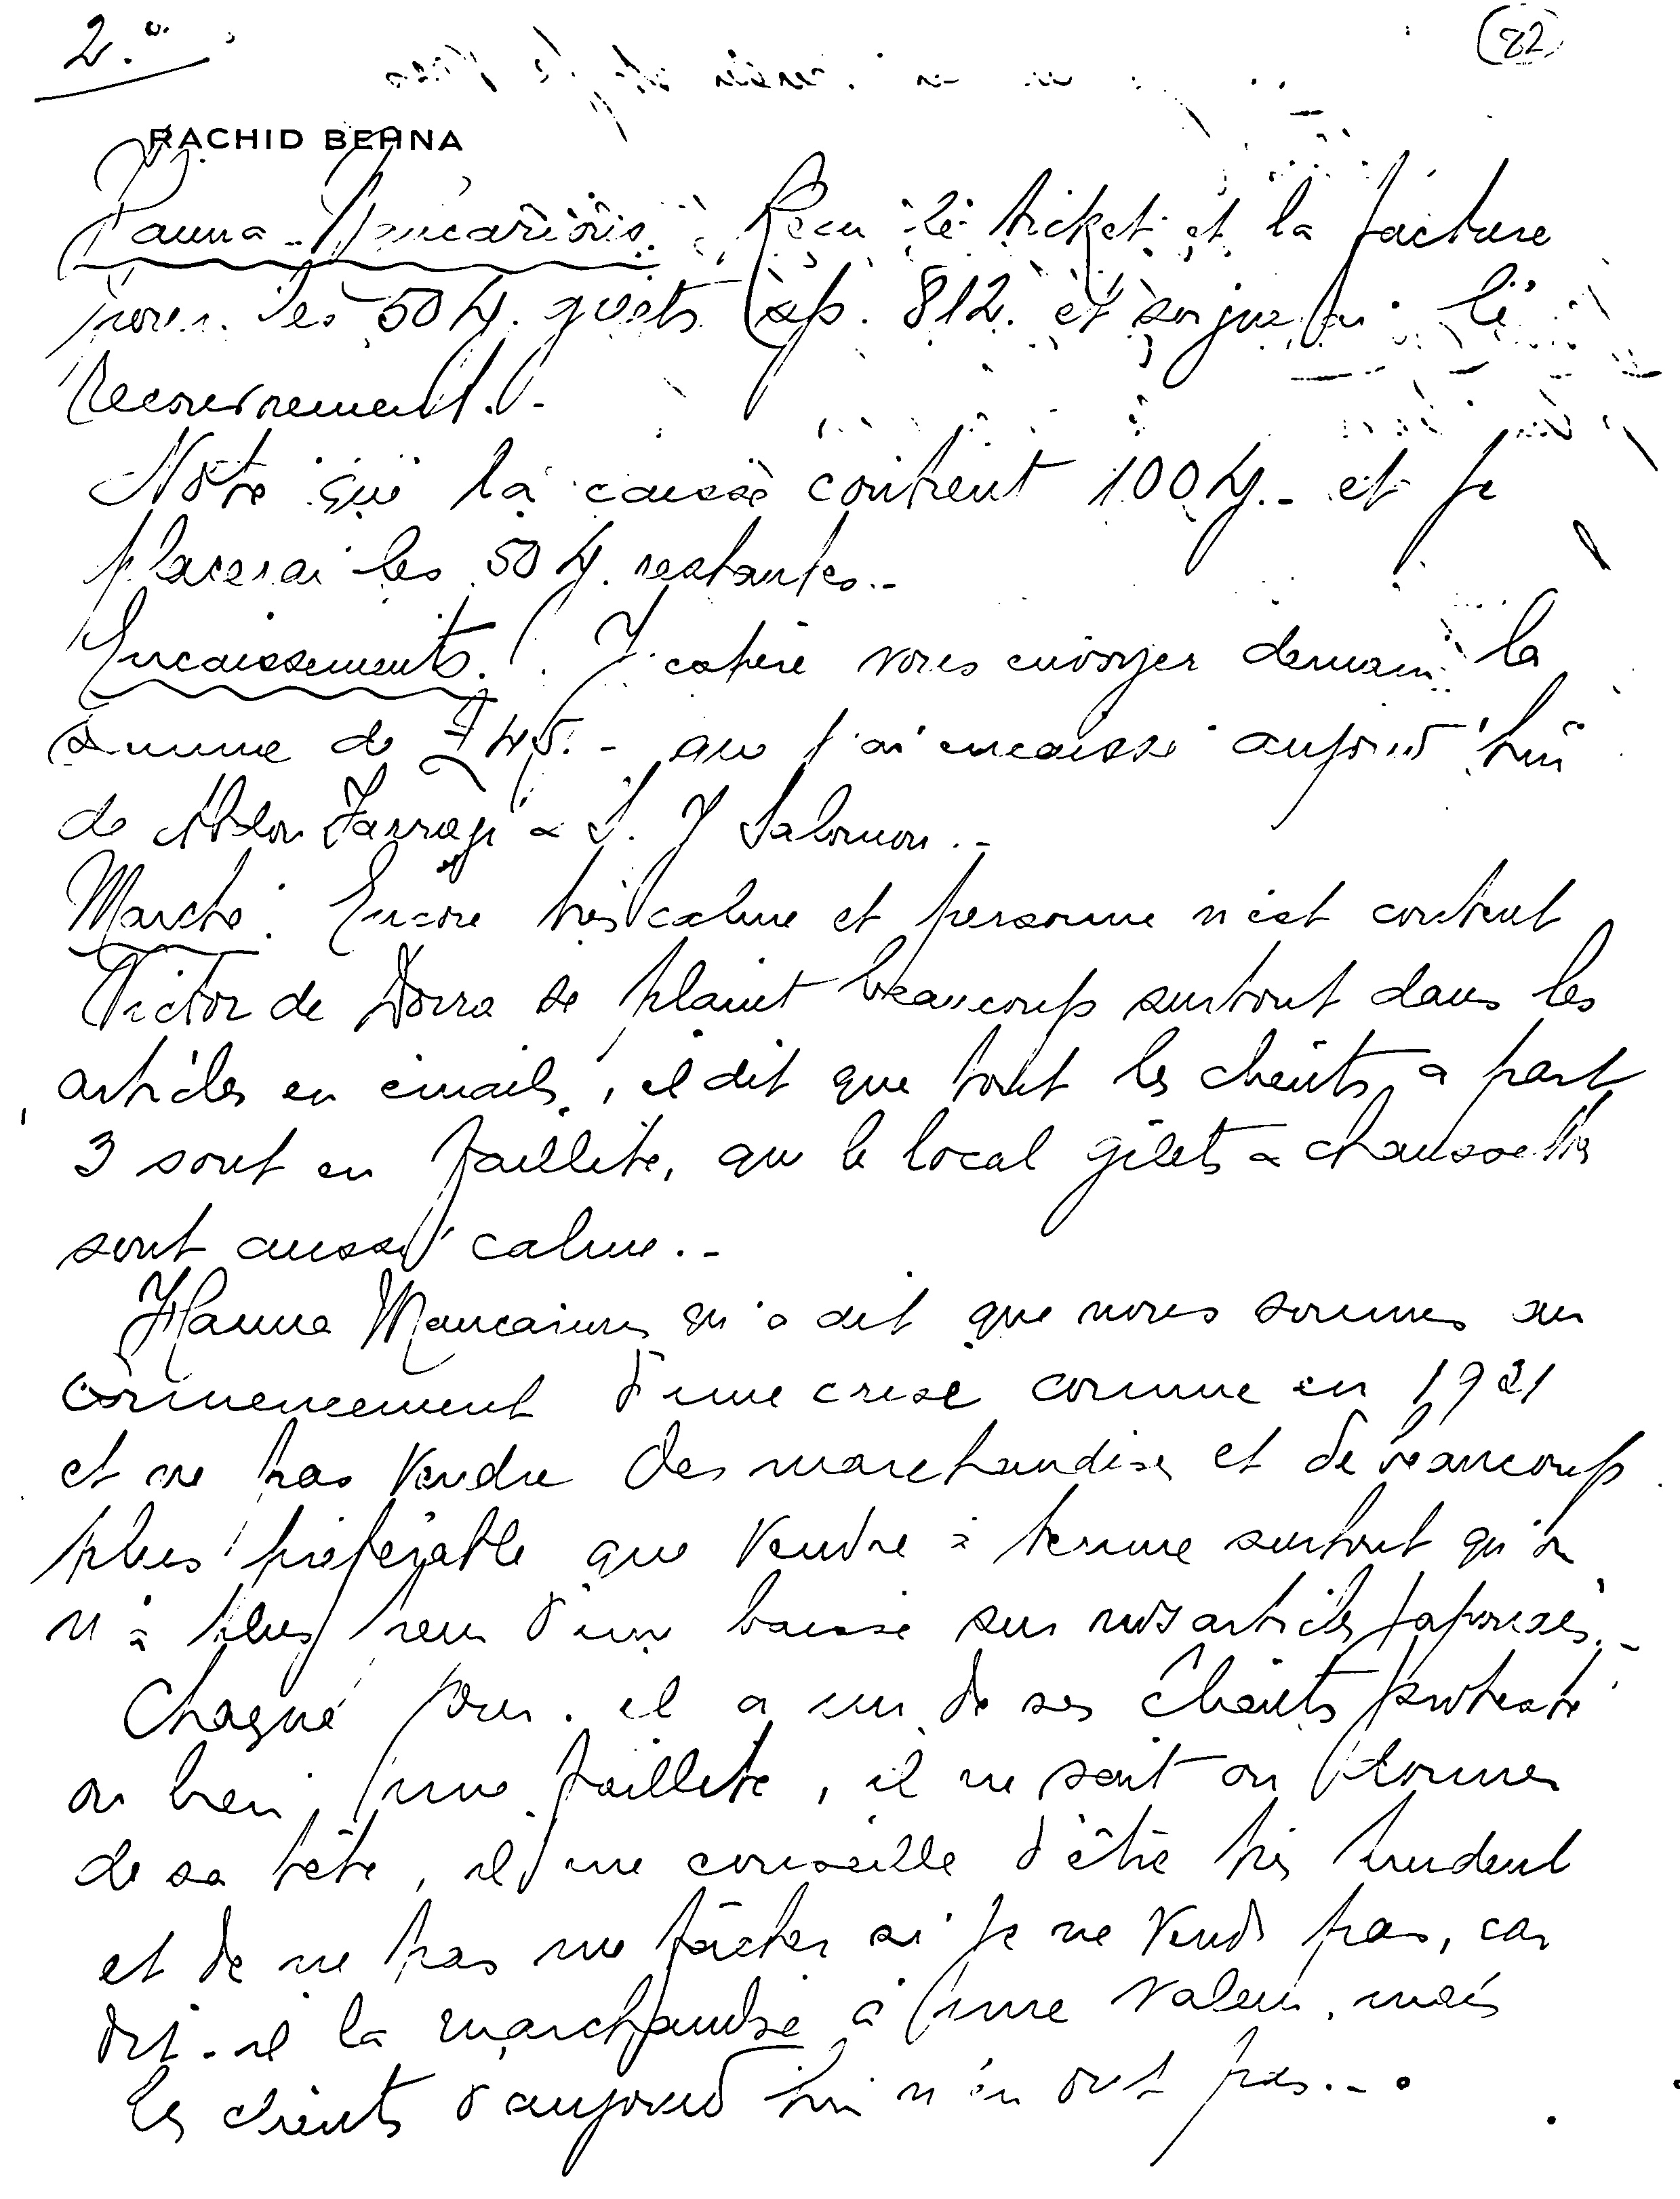 2.°
(22)
RACHID BEHNA
Hanna Mancarious. Reçu le ticket et la facture
pour les 50 gilets jap. 812. et soignerai le
recouvrement. -
Note que la caisse contient 100 - et je
placerai les 50 restantes. -
Encaissements. J'espère vous envoyer demain la
somme de £ 45. - que j'ai encaissé aujourd'hui
de & S. J Salomon. -
Marché. Encore très calme et personne n'est content
Victor de Dorra se plaint beaucoup surtout dans les
articles en émails, il dit que tout les clients à part
3 sont en faillite, que le local gilets & chaussettes
sont aussi calme. -
Hanna Mancarious m'a dit que nous sommes au
commencement d'une crise comme en 1921
et ne pas vendre des marchandises et de beaucoup
plus préférable que vendre à terme surtout qu'on
n'a plus peur d'une baisse sur nos articles japonais. -
Chaque jour il a un de ses clients protesté
ou bien une faillite, il ne sait ou donner
de sa tête, il me conseille d'être très prudent
et de ne pas me fâcher si je ne vends pas, car
dit-il la marchandise a une valeur, mais
les clients d'aujourd'hui n'en ont pas. -